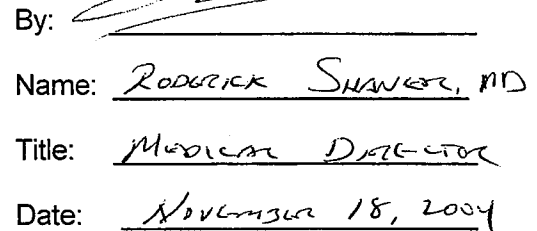 By:
Name: RODERICK SHANER, MD
Title: MEDICAL DIRECTOR
Date: NOVEMBER 18, 2004